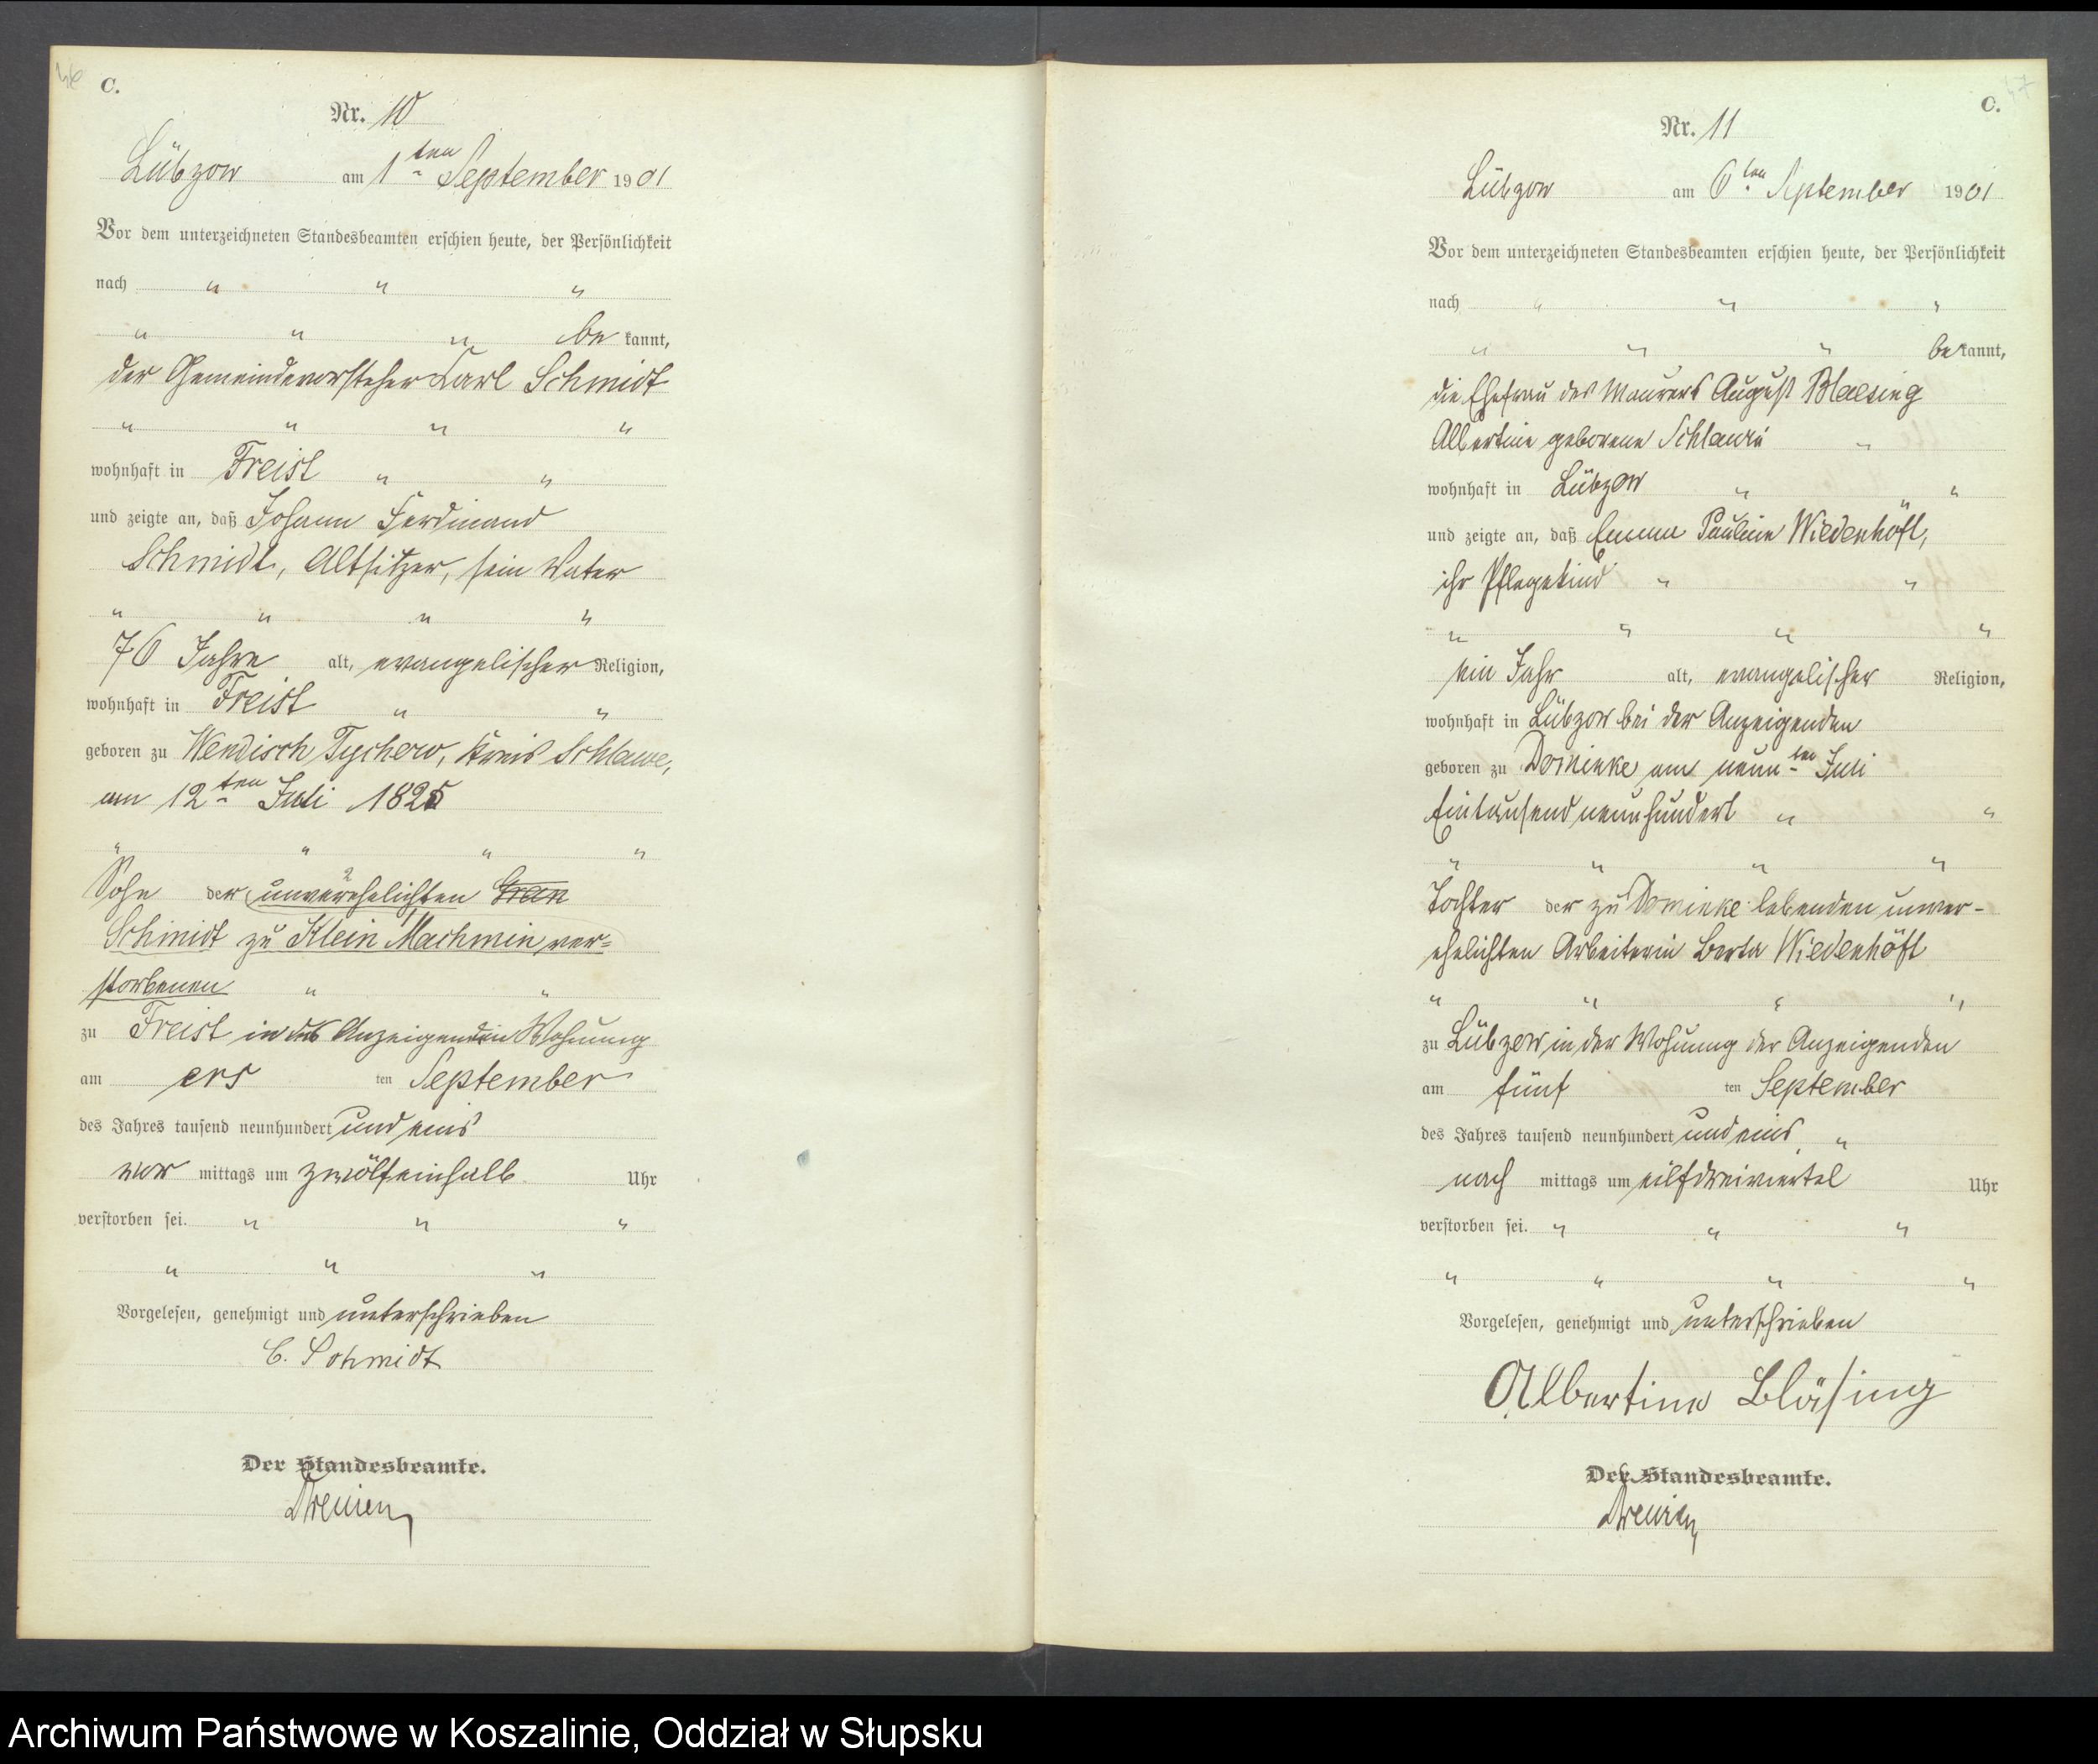 C.
Nr. 10
Lübzow am 1ten September 1901
Vor dem unterzeichneten Standesbeamten erschien heute, der Persönlichkeit
nach " " "
" " " be kannt,
der Gemeindevorsteher Carl Schmidt
" " " "
wohnhaft in Freist " "
und zeigte an, daß Johann Ferdinand
Schmidt, Altsitzer, sein Vater
" " " "
76 Jahre alt, evangelischer Religion,
wohnhaft in Freist " "
geboren zu Wendisch Tychow, Kreis Schlawe,
am 12ten Juli 1825
" " " "
Sohn der unverehelichten
Schmidt zu Klein Machmin ver=
storbenen " "
zu Freist in des Anzeigenden Wohnung
am ers ten September
des Jahres tausend neunhundert und eins
vor mittags um zwölfeinhalb Uhr
verstorben sei. " " "
" " "
Vorgelesen, genehmigt und unterschrieben
C. Schmidt
Der Standesbeamte.
C.
Nr. 11
Lübzow am 6ten September 1901
Vor dem unterzeichneten Standesbeamten erschien heute, der Persönlichkeit
nach " " "
" " " be kannt,
die Ehefrau des Maurers August Blaesing
Albertine geborene "
wohnhaft in Lübzow " "
und zeigte an, daß Emma Pauline Wiedenhöft,
ihr Pflegekind " "
" " " "
ein Jahr alt, evangelischer Religion,
wohnhaft in Lübzow bei der Anzeigenden
geboren zu Dominke am neunten Juli
Eintausendneunhundert " "
" " " "
Tochter der zu Dominke lebenden unver-
ehelichten Arbeiterin Berta Wiedenhöft
" " " "
zu Lübzow in der Wohnung der Anzeigenden
am fünf ten September
des Jahres tausend neunhundert und eins "
nach mittags um eilfdreiviertel Uhr
verstorben sei. " " "
" " " "
Vorgelesen, genehmigt und unterschrieben
Albertine Bläsing
Der Standesbeamte.
Archiwum Państwowe w Koszalinie, Oddział w Słupsku